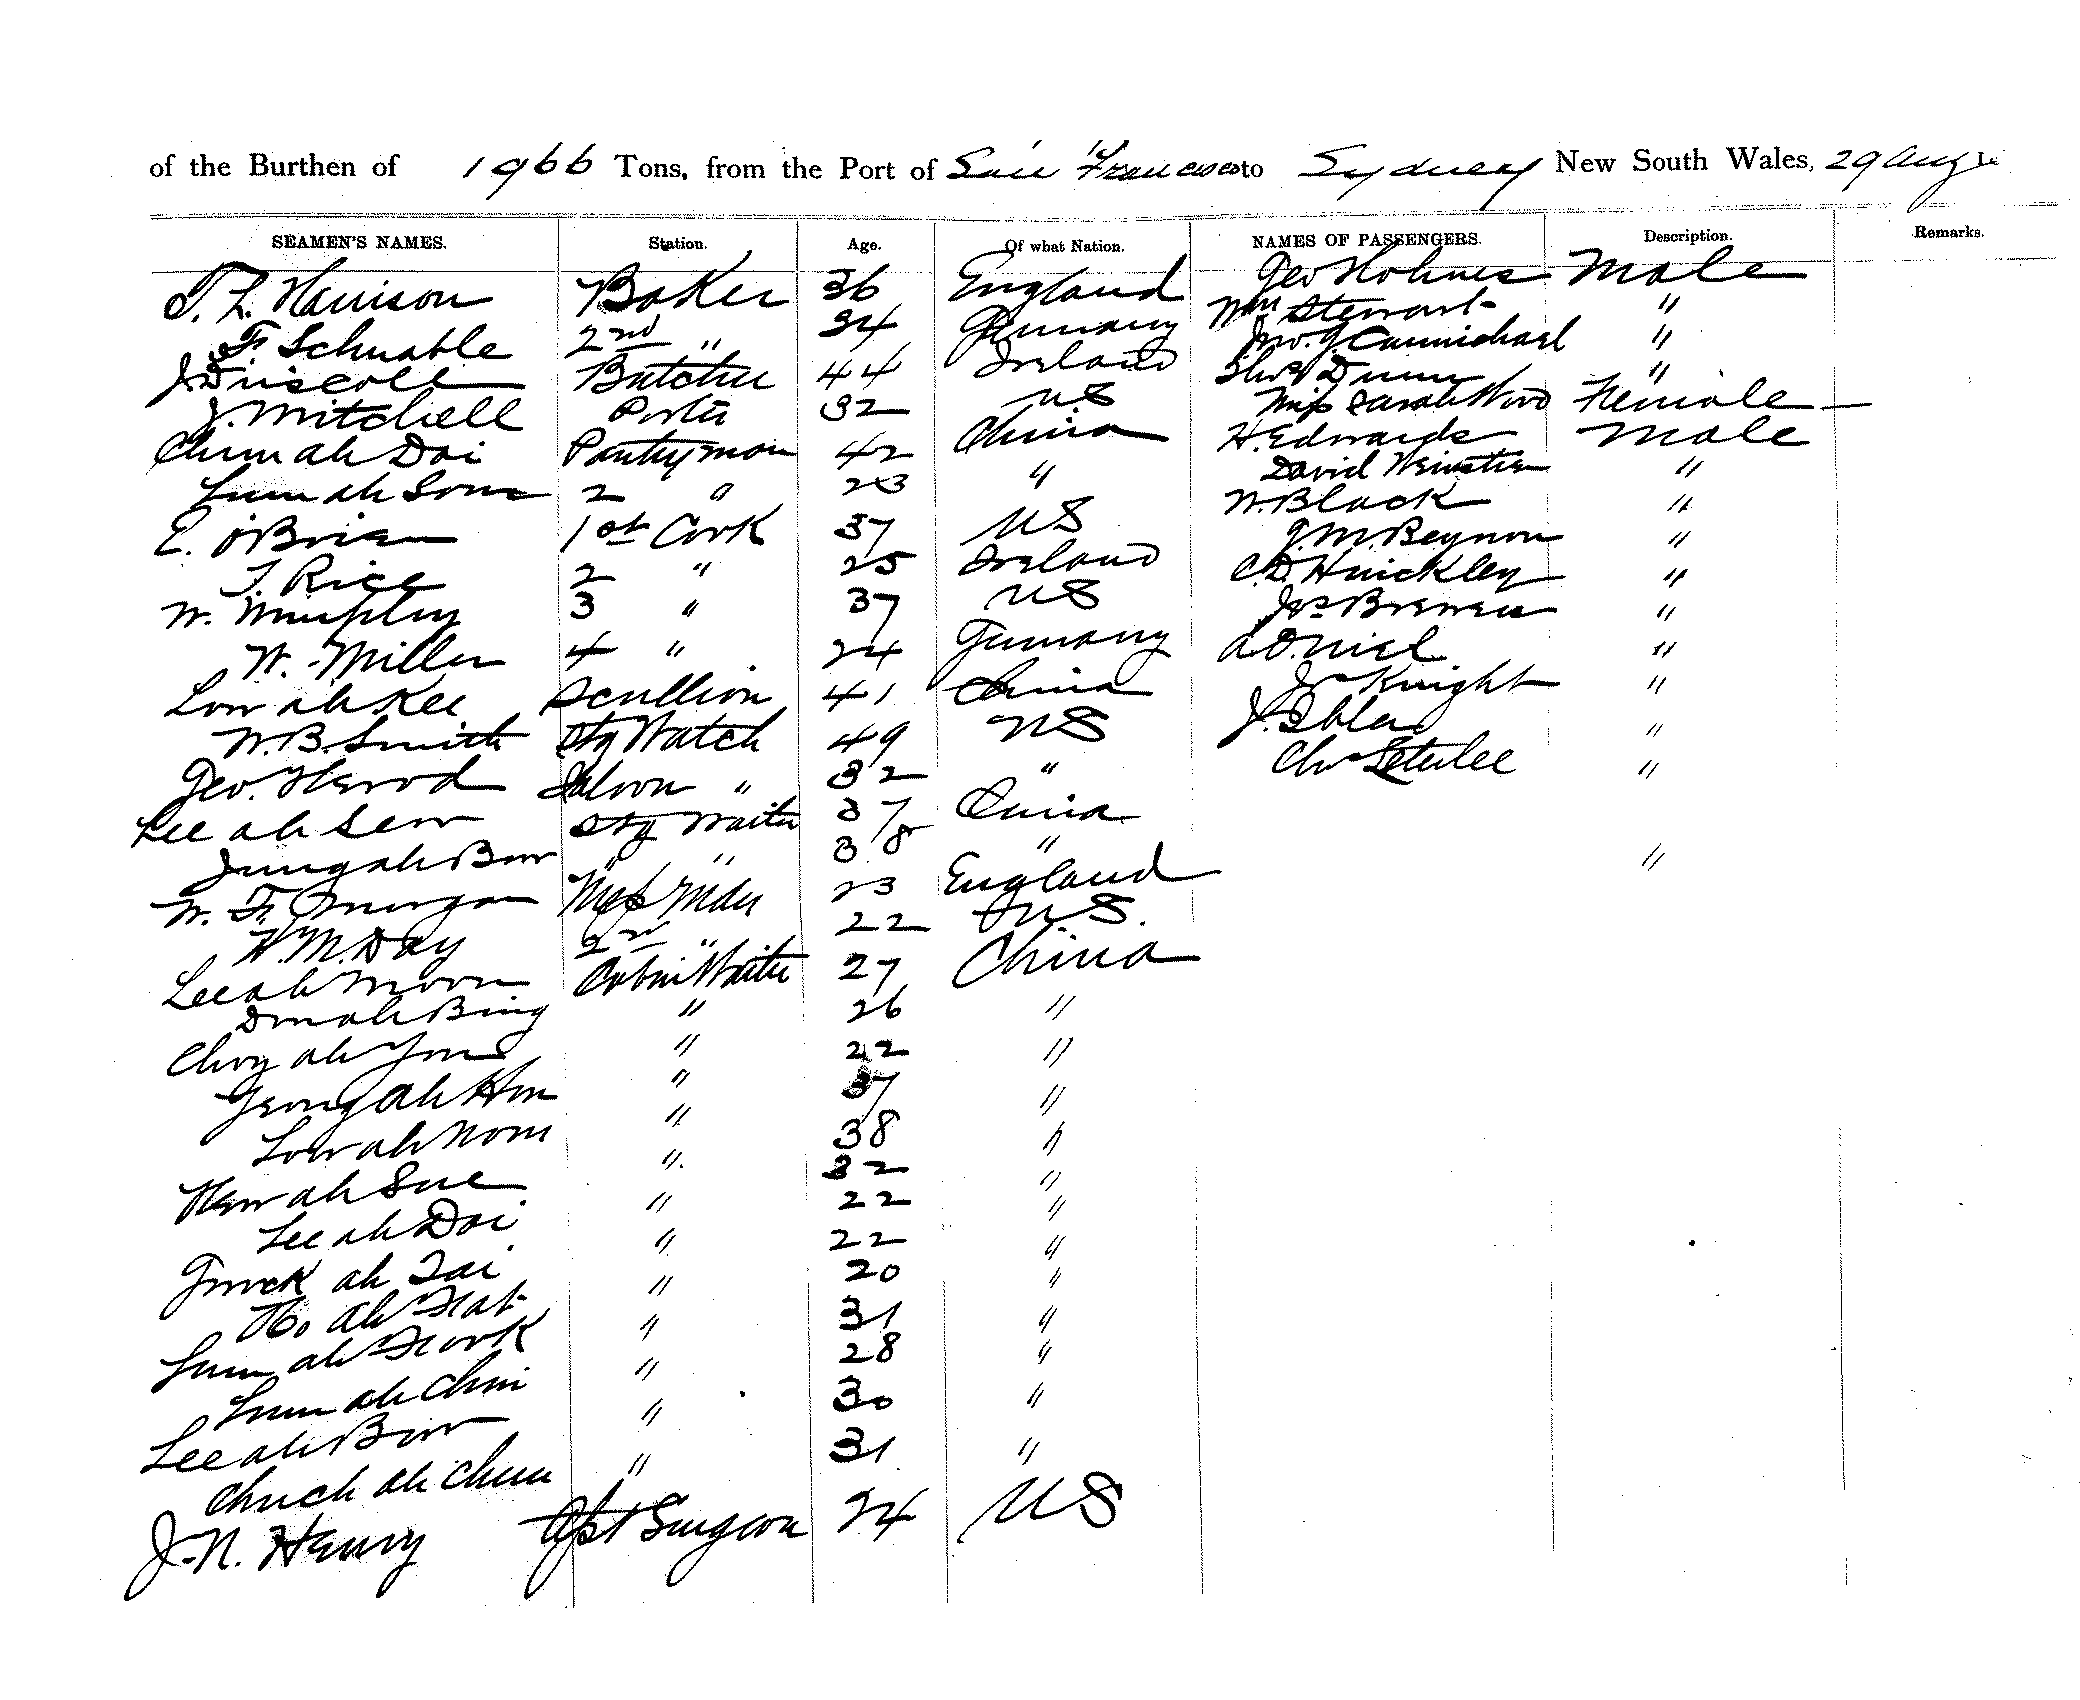 of the Burthen of 1966 Tons, from the Port of San Francisco to Sydney New South Wales, 29 Aug
SEAMEN'S NAMES. Station. Age. Of what Nation. NAMES OF PASSENGERS. Description. Remarks.
T. L. Harrison Baker 36 England Geo Holmes Male
F. Schnable 2nd " 34 Germany Wm Stewart "
J Driscoll Butcher 44 Ireland Jno. J. Carmichael "
J. Mitchell Porter 32 US Thos Dunn "
Chum ah Doi Pantryman 42 China Miss Sarah Wood Female
Lum ah Som 2 " 23 " H. Edwards Male
E. O'Brien 1st Cook 37 US David Weinstien "
T. Rice 2 " 25 Ireland W. Black "
W. Murphy 3 " 37 US J. M. Beynon "
W. Miller 4 " 24 Germany C. D. Hinckley "
Low ah Kee Scullion 41 China Jas Brewer "
W. B. Smith Stg Watch 49 US "
Geo. Herod Saloon " 32 " Jas Knight "
Lee ah Sew Stg Waiter 37 China "
Jung ah Bow " " 38 " Chas "
W. F. Morgan Mess Man 23 England "
W. M. Day 2nd " 22 U.S.
Lee ah Moon Cabin Waiter 27 China
ah Bing " 26 "
Choy ah You " 22 "
Yeong ah Hon " 37 "
Low ah Nom " 38 "
Hew ah Sue " 32 "
Lee ah Doi " 22 "
ah Tai " 22 "
Ho ah Fat " 20 "
Lum ah Fook " 31 "
Lum ah Chin " 28 "
Lee ah Bow " 30 "
Chuck ah Chun " 31 "
J. N. Henry Asst Surgeon 24 US